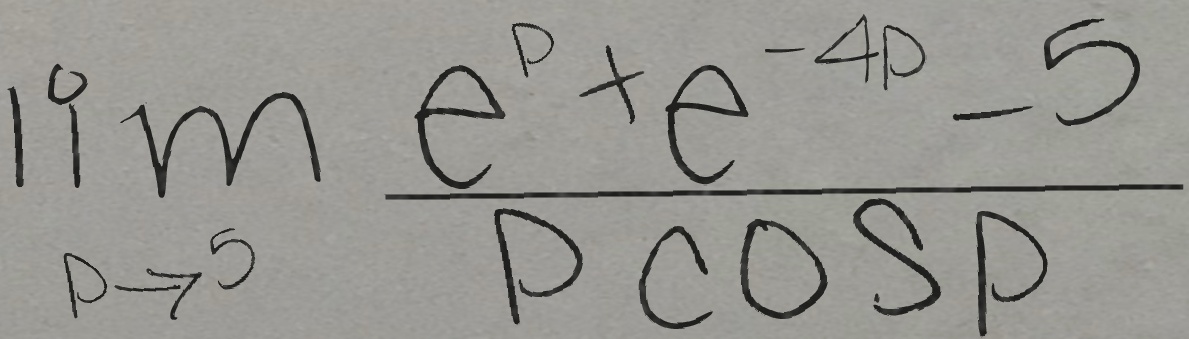 \lim_{p \to 5} \frac{e^{p} + e^{-4p} - 5}{p \cos p}